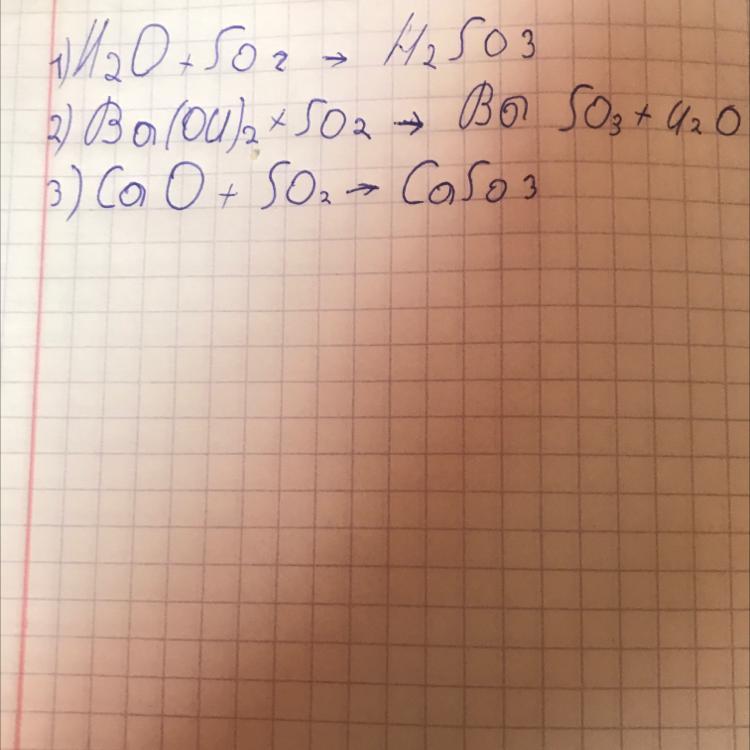 1) H₂O + SO₂ → H₂SO₃
2) Ba(OH)₂ + SO₂ → Ba SO₃ + H₂O
3) CaO + SO₂ → CaSO₃